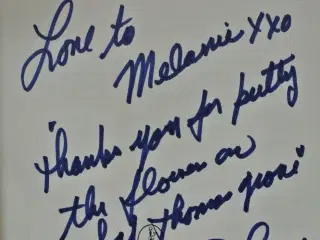 Love to
Melanie xxo
"thanks you for putty
the flowers on
thomas grave"